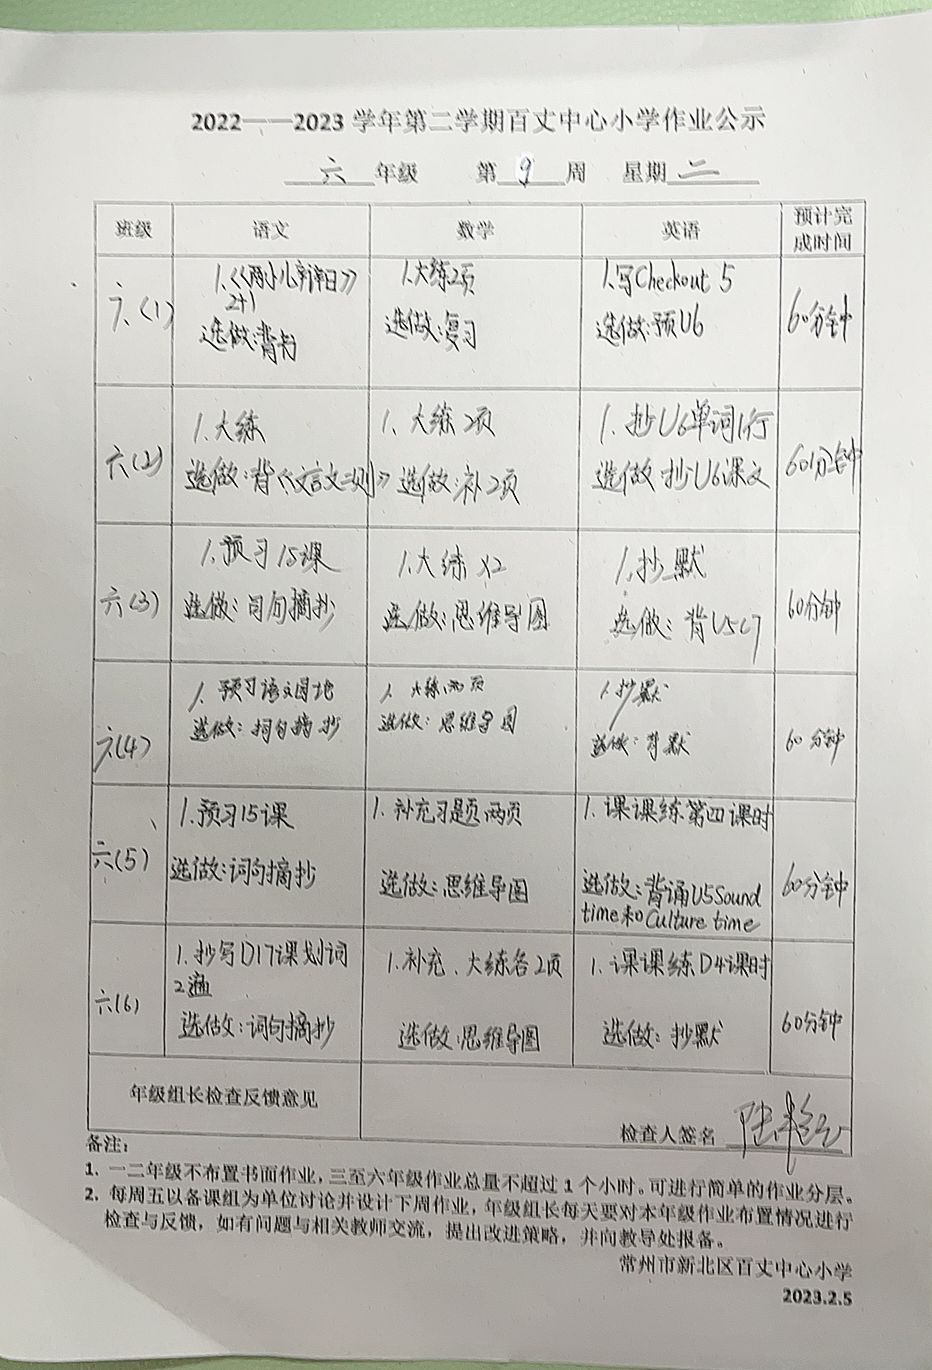 2022——2023 学年第二学期百丈中心小学作业公示
六 年级 第 9 周 星期 二
班级 语文 数学 英语 预计完成时间
六(1)
1.《两小儿辩日》
2+1
选做:背书
1.大练2页
选做:复习
1.写Checkout 5
选做:预U6
60分钟
六(2)
1.大练
选做:背《文言文二则》
1.大练2页
选做:补2页
1.抄U6单词1行
选做:抄U6课文
60分钟
六(3)
1.预习15课
选做:词句摘抄
1.大练x2
选做:思维导图
1.抄默
选做:背U5C7
60分钟
六(4)
1.预习语文园地
选做:词句摘抄
1.大练两页
选做:思维导图
1.抄默
选做:背默
60分钟
六(5)
1.预习15课
选做:词句摘抄
1.补充习题两页
选做:思维导图
1.课课练第四课时
选做:背诵U5Sound
time和Culture time
60分钟
六(6)
1.抄写D17课划词
2遍
选做:词句摘抄
1.补充、大练各2页
选做:思维导图
1.课课练D4课时
选做:抄默
60分钟
年级组长检查反馈意见
检查人签名
备注:
1、一二年级不布置书面作业,三至六年级作业总量不超过1个小时。可进行简单的作业分层。
2、每周五以备课组为单位讨论并设计下周作业,年级组长每天要对本年级作业布置情况进行
检查与反馈,如有问题与相关教师交流,提出改进策略,并向教导处报备。
常州市新北区百丈中心小学
2023.2.5